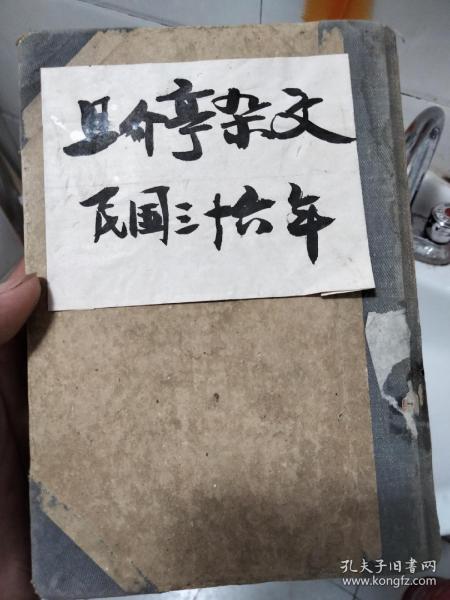 且介亭杂文
民国三十六年
孔夫子旧书网
www.kongfz.com